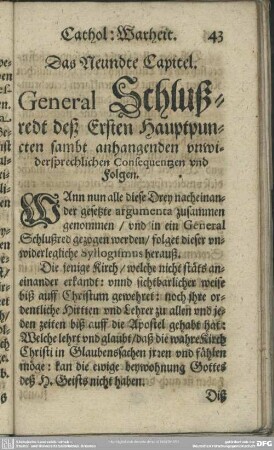 Cathol: Warheit. 43
Das Neundte Capitel.
General Schluß-
redt deß Ersten Hauptpun-
cten sambt anhangenden vnwi-
dersprechlichen Consequentzen vnd
Folgen.
WAnn nun alle diese Drey nacheinan-
der gesetzte argumenta zusammen
genommen / vnd in ein General
Schlußred gezogen werden / folget dieser vn-
widerlegliche Syllogismus herauß.
Die jenige Kirch / welche nicht stäts an-
einander erkandt: vnnd sichtbarlicher weise
biß auff Christum gewehret: noch ihre or-
dentliche Hirten vnd Lehrer zu allen vnd je-
den zeiten biß auff die Apostel gehabt hat:
Welche lehrt vnd glaubt / daß die wahre Kirch
Christi in Glaubenssachen jrren vnd fählen
möge: kan die ewige beywohnung Gottes
deß H. Geists nicht haben.
Diß